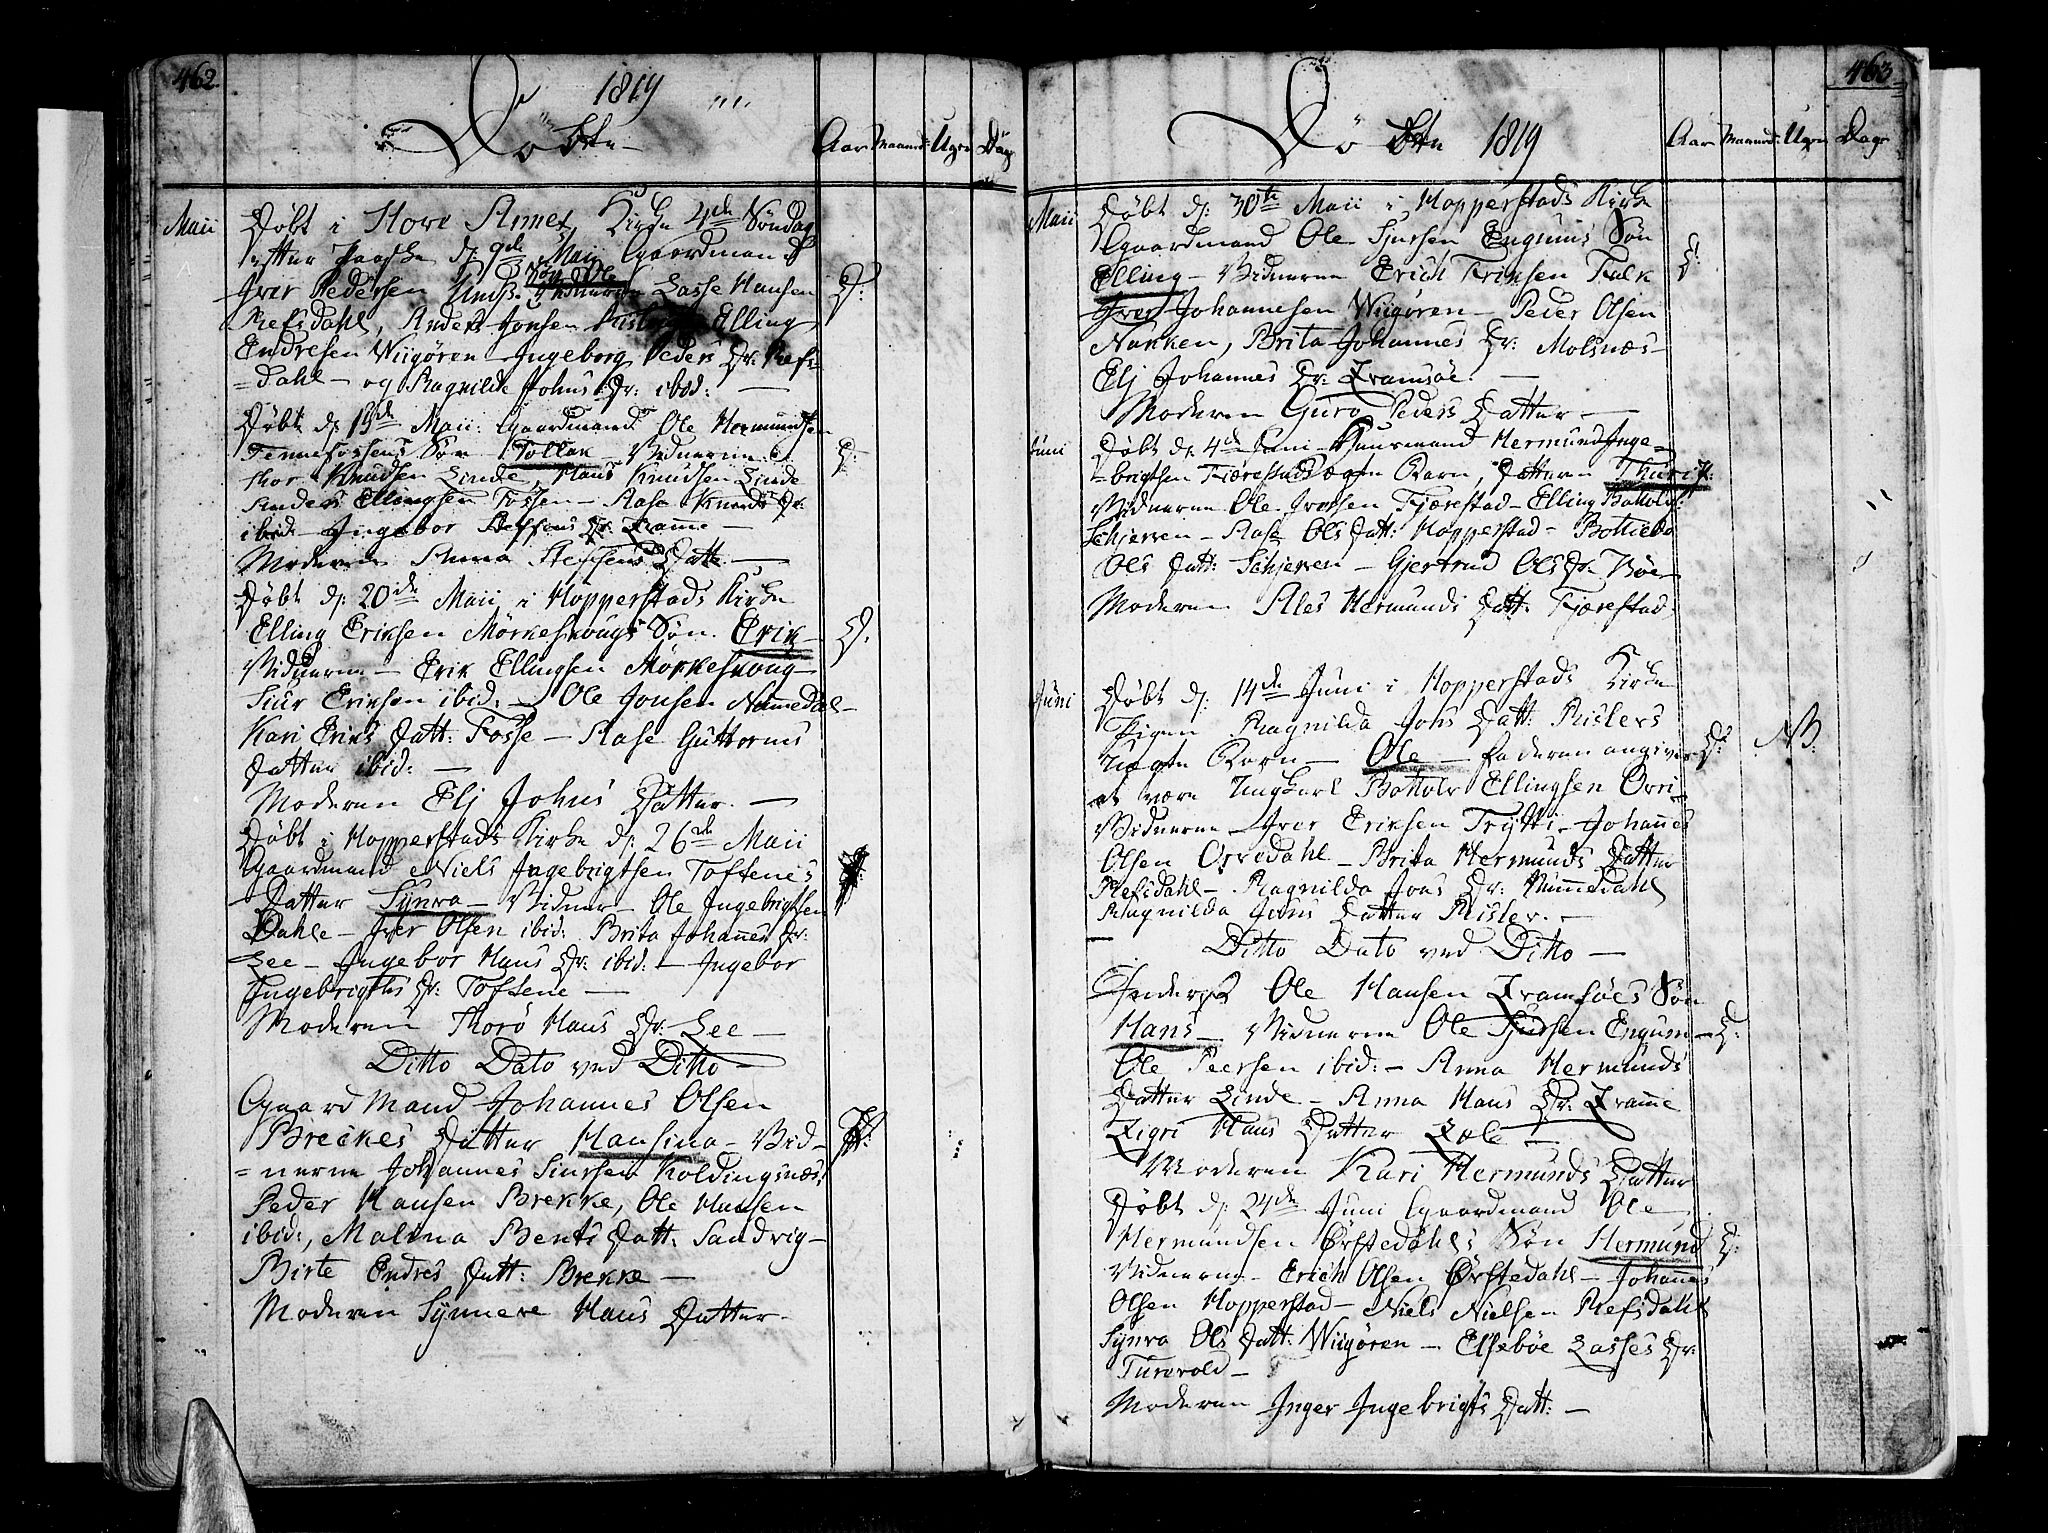 462.
1819
Døbte
Aar Maaned: Uger Dage
Maii Døbt i Hove Annex Kirke 4de Søndag
efter Paaske d: 9de Maii Gaardmand
Iver Pedersen Søn Ole Vidnerne Lasse Hansen
Refsdahl, Anders Jonsen Elling
Endresen Wiigören Ingeborg Peders Dr: Refs-
=dahl – og Ragnilde Johns Dr: ibid: —
Døbt d: 13de Maii Gaardmand Ole Hermundsen
Fennefossens Søn Tollak – Vidnerne
Thor Knudsen Linde, Hans Knudsen Linde
Anders Ellingsen Fossen – Aase Knuds Dr:
ibid – Ingebor Steffens Dr: Framme –
Moderen Anna Steffens Datte —
Døbt d: 20de Maii i Hopperstads Kirke
Elling Eriksen Mörkeskougs Søn. Erik –
Vidnerne – Erik Ellingsen Mörkeskoug –
Siur Eriksen ibid: – Ole Jonsen Nummedal –
Kari Eriks Datt: Fosse – Aase Guttorms
Datter ibid: —
Moderen Elj Johns Datter. —
Døbt i Hopperstads Kirke d: 26de Maii
Gaardmand Niels Ingebrigtsen Toftenes
Datter Synva – Vidner – Ole Ingebrigtsen
Dahle – Iver Olsen ibid: Brita Johannes Dr:
Lee – Ingebor Hans Dr: ibid: – Ingebor
Ingebrigths Dr: Toftene —
Moderen Thoro Hans Dr: Lee —
Ditto Dato ved Ditto —
Gaardmand Johannes Olsen
Breckes Datter Hansina – Vid-
=nerne Johannes Siursen Koldingsnæs,
Peder Hansen Brekke, Ole Hansen
ibid:, Malena Bents Datt: Sandvig –
Birte Endres Datt: Brekke –
Moderen Synneve Hans Datter –
463
Døbte 1819
Aar Maaned: Uger Dage
Maii Døbt d: 30te Maii i Hopperstads Kirke
Gaardmand Ole Sjursen Engums Søn
Elling – Vidnerne Erich Eriksen Falk
Iver Johannesen Wiigören – Peder Olsen
Nanken, Brita Johannes Dr: Molsnæs –
Elj Johannes Dr: Framsöe. —
Moderen Guro Peders Datter —
Juni Døbt d: 4de Juni Huusmand Hermund Inge-
=brigtsen Fjærestads ægte Barn, Datteren Thuri
Vidnerne Ole Iversen Fjærestad – Elling Bottolfs:
Schjerven – Aase Ols Datt: Hopperstad – Bothilda
Ols Datt: Schjerven – Gjertrud Ols Dr: Böe –
Moderen Ales Hermunds Datt: Fjærestad.
Juni Døbt d: 14de Juni i Hopperstads Kirke
Pigen Ragnilda Johs Datt: Rislers
uægte Barn – Ole – Faderen angives NB.
at være Ungkarl Bottolv Ellingsen Orri.
Vidnerne Iver Eriksen Trytti – Johannes
Olsen Orredahl – Brita Hermunds Datter
Refsdahl – Ragnilda Jons Dr: Nummedahl
Ragnilda Johns Datter Risler. –
Ditto Dato ved Ditto —
Ole Hansen Framsöes Søn
Hans – Vidnerne Ole Sjursen Engum –
Ole Peersen ibid: – Anna Hermunds
Datter Linde – Anna Hans Dr: Framme
Sigri Hans Datter Fæle –
Moderen Kari Hermunds Datter
Døbt d: 24de Juni Gaardmand Ole
Hermundsen Örstedahls Søn Hermund
Vidnerne – Erich Olsen Örstedahl – Johannes
Olsen Hopperstad – Niels Nielsen Refsdahl
Synva Ols Datt: Wiigören – Elseböe Lasses Dr:
Turvold –
Moderen Inger Ingebrigts Datt: –